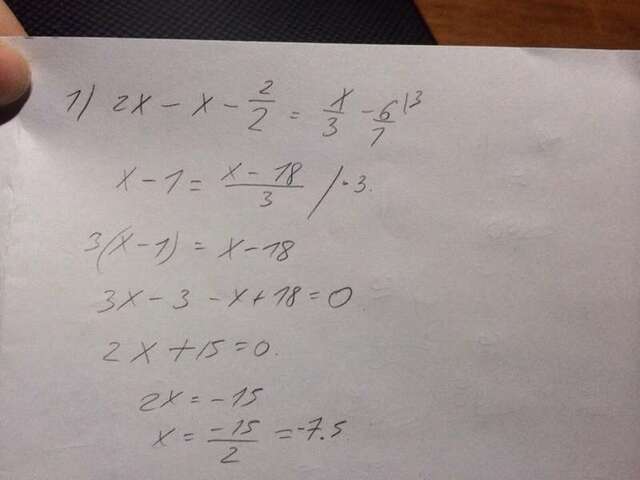 1) 2x - x - 2/2 = x/3 - 6/1 |3
x - 1 = (x - 18)/3 / · 3.
3(x - 1) = x - 18
3x - 3 - x + 18 = 0
2x + 15 = 0.
2x = -15
x = -15/2 = -7.5